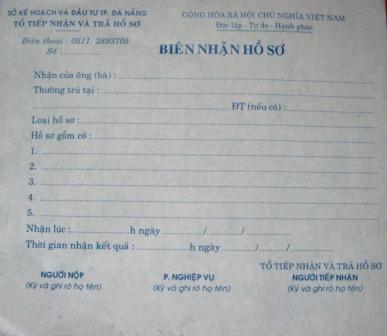 SỞ KẾ HOẠCH VÀ ĐẦU TƯ TP. ĐÀ NẴNG
TỔ TIẾP NHẬN VÀ TRẢ HỒ SƠ
Điện thoại : 0511. 3893705
Số :
CỘNG HÒA XÃ HỘI CHỦ NGHĨA VIỆT NAM
Độc lập - Tự do - Hạnh phúc
BIÊN NHẬN HỒ SƠ
Nhận của ông (bà) :
Thường trú tại :
ĐT (nếu có) :
Loại hồ sơ :
Hồ sơ gồm có :
1.
2.
3.
4.
5.
Nhận lúc : h ngày / /
Thời gian nhận kết quả : h ngày / /
NGƯỜI NỘP
(Ký và ghi rõ họ tên)
P. NGHIỆP VỤ
(Ký và ghi rõ họ tên)
TỔ TIẾP NHẬN VÀ TRẢ HỒ SƠ
NGƯỜI TIẾP NHẬN
(Ký và ghi rõ họ tên)